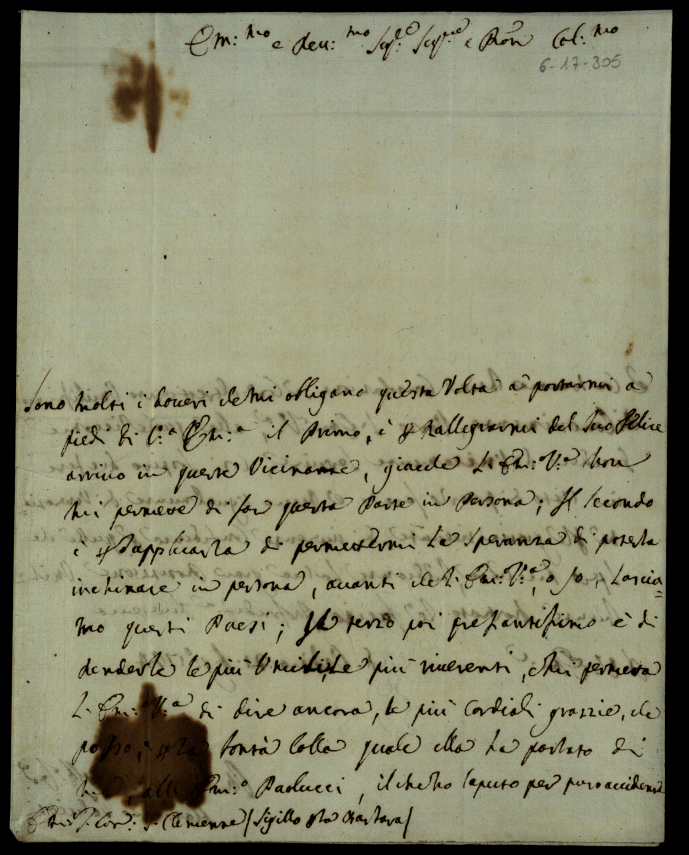 Em:mo e Reu:mo Sig.re Sig.re e Pron Col:mo
6-17-305
Sono molti i doueri che mi obligano questa Volta a portarmi a
piedi di V.a Em:a il Primo, è p rallegrarmi del Suo felice
arriuo in queste Vicinanze, giacche L'Em:a V.a non
mi permese di far questa Parte in Persona; Il Secondo
è p supplicarla di permettermi la Speranza di poterla
inchinare in persona, auanti che L'Em:a V.a, o Io, Lascia=
mo questi Paesi; Il terzo poi pressantissimo è di
renderle le più Umili, le più riuerenti, e mi permetta
L'Em:a V.a di dire ancora, le più Cordiali grazzie, che
posso, p la bontà colla quale ella ha parlato di
me, all' Em:o Paolucci, il che ho saputo per puro accidente
Em:o S. Clemente / Sigillo